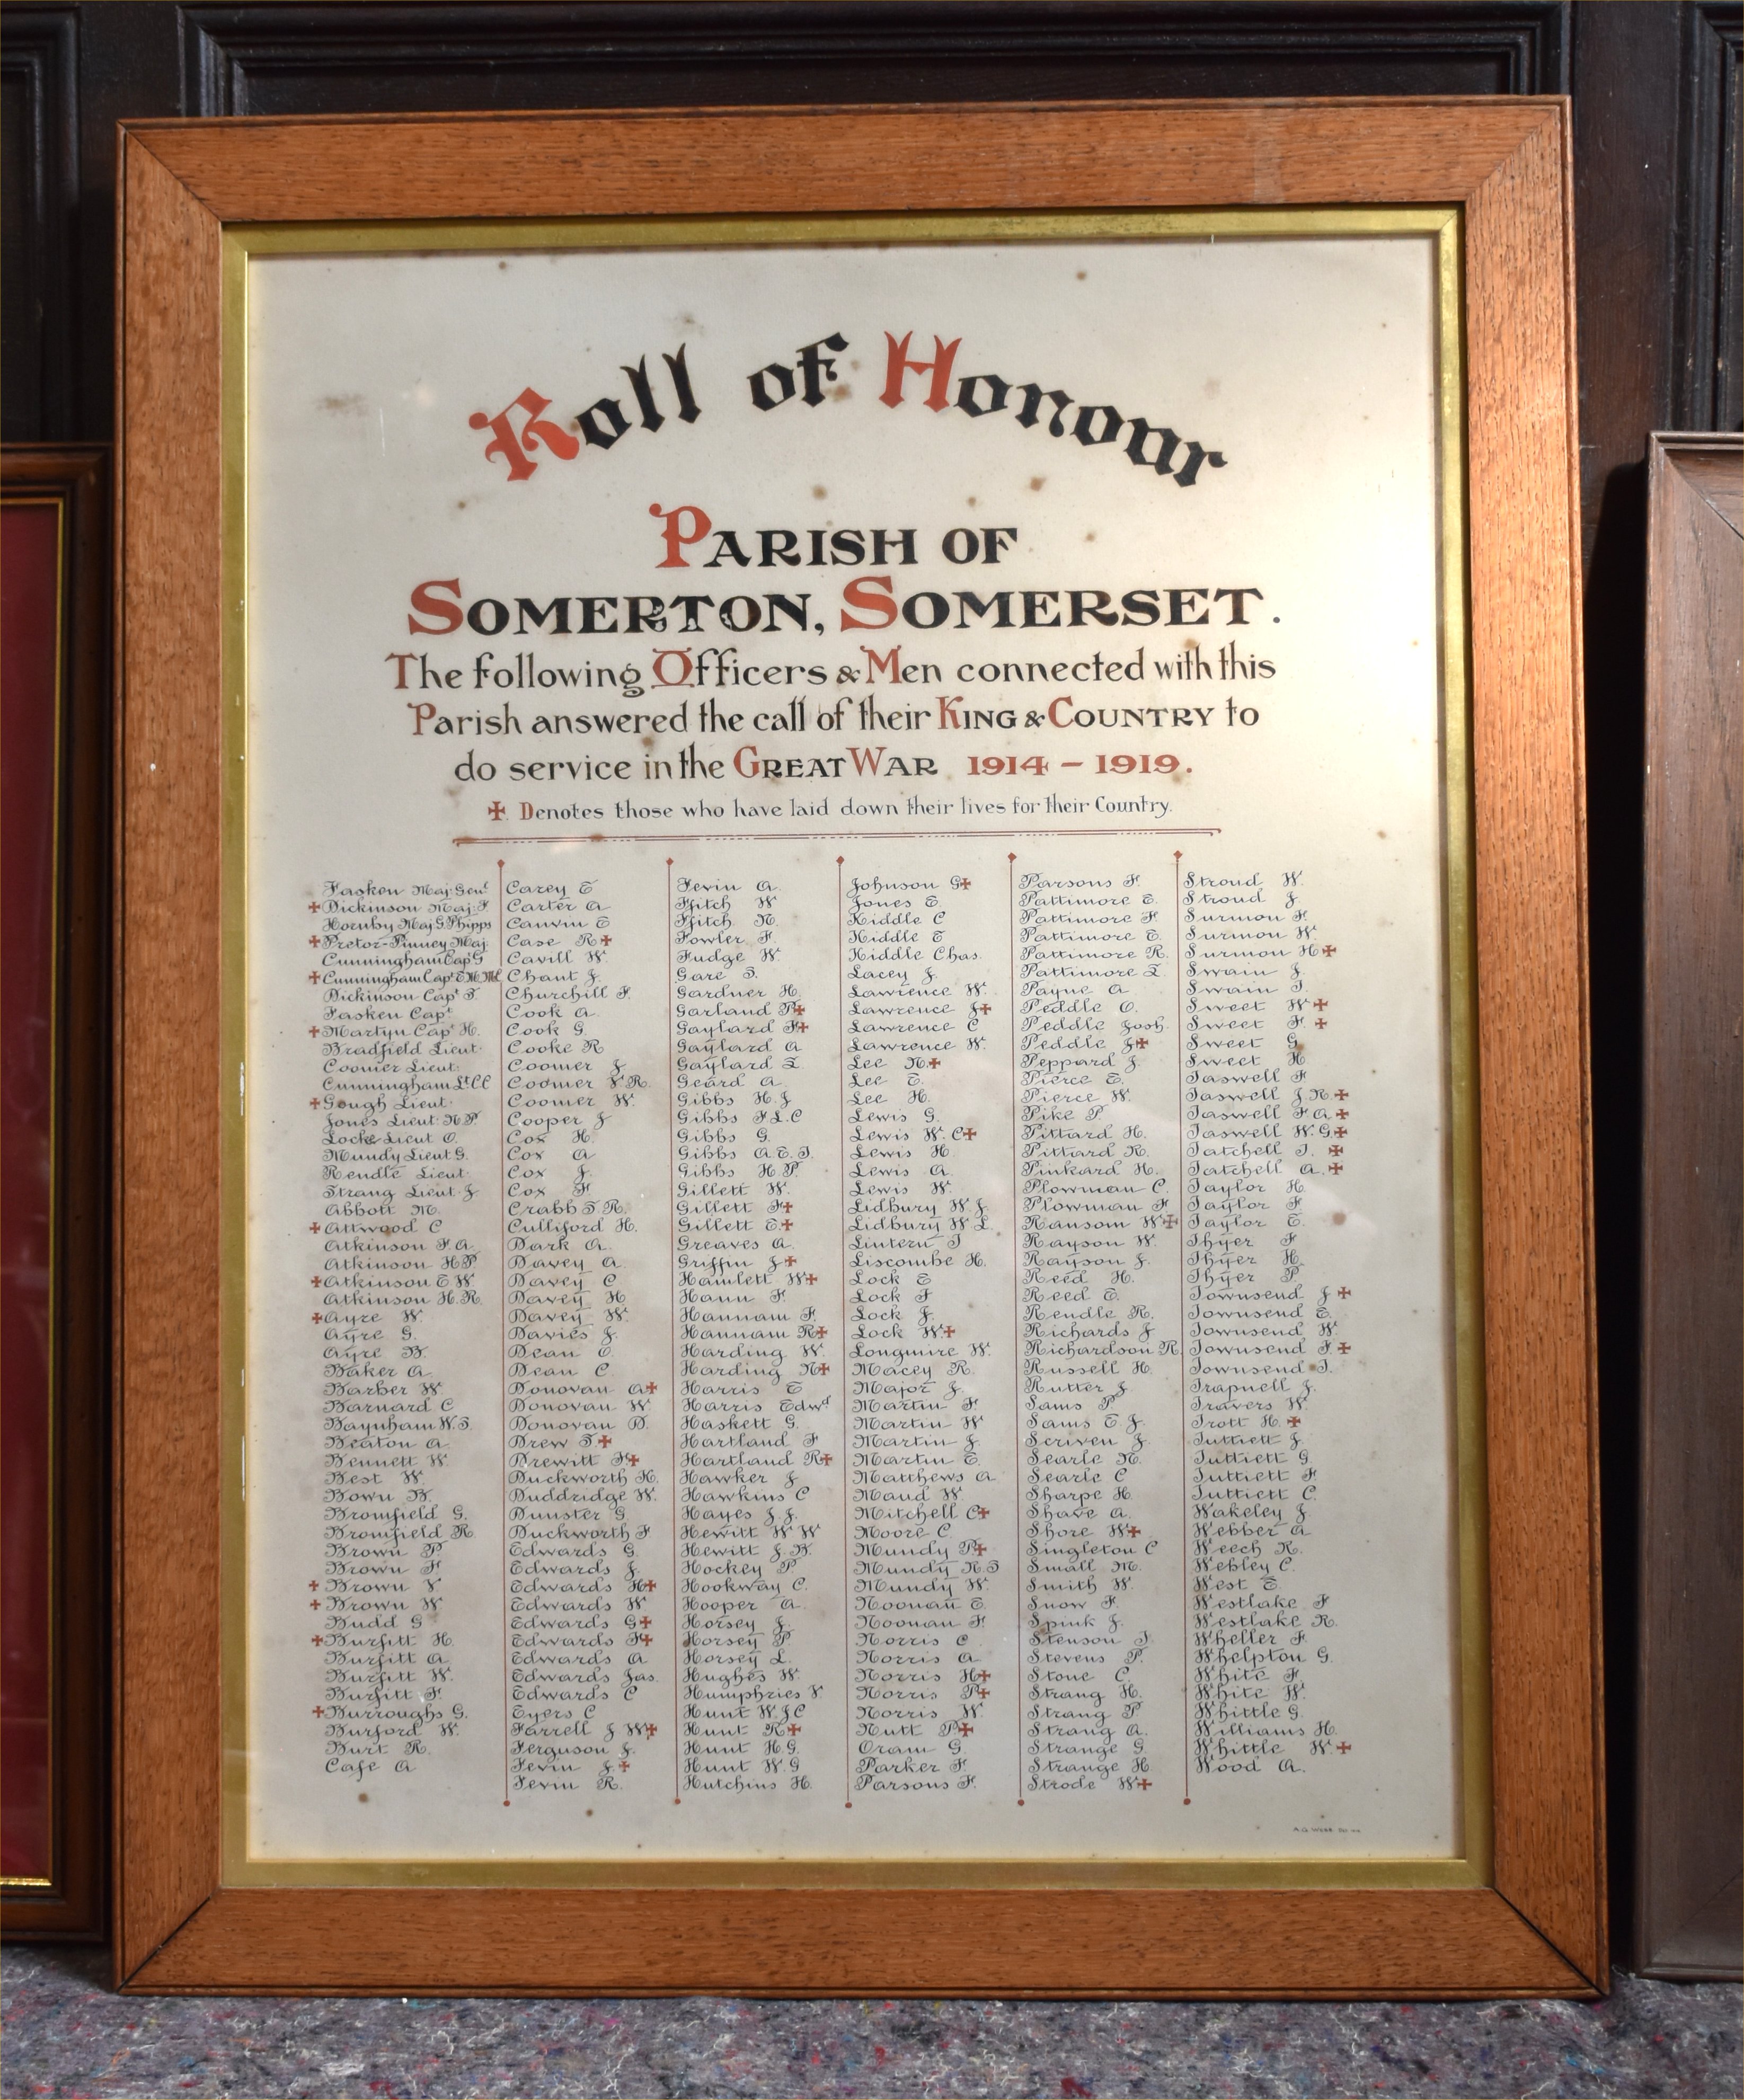 Roll of Honour
PARISH OF
SOMERTON, SOMERSET.
The following Officers & Men connected with this
Parish answered the call of their KING & COUNTRY to
do service in the GREAT WAR 1914 – 1919.
✠ Denotes those who have laid down their lives for their Country.
Fasken Maj: Genl
✠ Dickinson Maj: F.
Hornby Maj G Phipps
✠ Pretor-Pinney Maj.
Cunningham Capt G
✠ Cunningham Capt E.M.
Dickinson Capt
Fasken Capt
✠ Martyn Capt H.
Bradfield Lieut.
Coomer Lieut.
Cunningham Lt CC
✠ Gough Lieut.
Jones Lieut. N.P.
Locke Lieut O.
Mundy Lieut G.
Rendle Lieut.
Strang Lieut. J
Abbott M.
✠ Attwood C
Atkinson F. A.
Atkinson H P
✠ Atkinson E. W.
Atkinson H. R.
✠ Ayre W.
Ayre G.
Ayre B.
Baker A.
Barber W
Barnard C
Baynham W. S.
Beaton A.
Bennett W.
Best W.
Bown B.
Bromfield G.
Bromfield R.
Brown P
Brown F
✠ Brown V
✠ Brown W
Budd G
✠ Burfitt H.
Burfitt A.
Burfitt W.
Burfitt F.
✠ Burroughs G.
Burford W.
Burt R.
Cafe A
Carey E
Carter A
Canvin E
Case R ✠
Cavill W.
Chant J.
Churchill F.
Cook A.
Cook G.
Cooke R
Coomer J
Coomer V. R.
Coomer W.
Cooper J
Cox H.
Cox A
Cox J.
Cox F
Crabb S R.
Culliford H.
Dark A.
Davey A.
Davey C
Davey H
Davey W.
Davies J.
Dean E.
Dean C.
Donovan A ✠
Donovan W.
Donovan D.
Drew S ✠
Drewitt F ✠
Duckworth H.
Duddridge W.
Dunster G
Duckworth F
Edwards G.
Edwards J.
Edwards H ✠
Edwards W
Edwards G ✠
Edwards F ✠
Edwards A
Edwards Jas.
Edwards C
Eyers C
Farrell J W ✠
Ferguson J.
Fevin J ✠
Fevin R.
Fevin A.
Ffitch W
Ffitch N.
Fowler F.
Fudge W.
Gare S.
Gardner H.
Garland P ✠
Gaylard F ✠
Gaylard A
Gaylard L
Geard A.
Gibbs H. J
Gibbs F L. C
Gibbs G.
Gibbs A. E. T.
Gibbs H. P.
Gillett W.
Gillett F ✠
Gillett E. ✠
Greaves A.
Griffin J ✠
Hamlett W ✠
Hann F.
Hannam F.
Hannam R ✠
Harding W.
Harding N ✠
Harris E
Harris Edwd
Haskett G.
Hartland F
Hartland R ✠
Hawker J
Hawkins C
Hayes J. J.
Hewitt W W
Hewitt J. B.
Hockey P.
Hookway C.
Hooper A.
Horsey J.
Horsey P.
Horsey L.
Hughes W.
Humphries V
Hunt W. J C
Hunt R ✠
Hunt H. G.
Hunt W. G
Hutchins H.
Johnson G ✠
Jones E.
Kiddle C
Kiddle E
Kiddle Chas.
Lacey J.
Lawrence W.
Lawrence J ✠
Lawrence C
Lawrence W.
Lee N. ✠
Lee E.
Lee H.
Lewis G.
Lewis W. C ✠
Lewis H.
Lewis A.
Lewis W.
Lidbury W. J.
Lidbury W L.
Lintern T
Liscombe H.
Lock E
Lock F
Lock J.
Lock W. ✠
Longmire W.
Macey R.
Major J.
Martin F.
Martin W
Martin J.
Martin E.
Matthews A.
Maud W
Mitchell C ✠
Moore C.
Mundy P ✠
Mundy N. S
Mundy W.
Noonan E.
Noonan F.
Norris C
Norris A.
Norris H ✠
Norris P ✠
Norris W.
Nutt P ✠
Oram G.
Parker F.
Parsons F.
Parsons F.
Pattimore E.
Pattimore F.
Pattimore E
Pattimore R.
Pattimore L
Payne A
Peddle O.
Peddle Josh.
Peddle J ✠
Peppard J.
Pierce E.
Pierce W.
Pike P.
Pittard H.
Pittard R.
Pinkard H.
Plowman C.
Plowman F
Ransom W ✠
Rayson W.
Rayson J.
Reed H.
Reed E.
Rendle R.
Richards J
Richardson R.
Russell H.
Rutter J.
Sams P
Sams E. J.
Scriven J.
Searle N.
Searle C
Sharpe H.
Shave A.
Shore W ✠
Singleton C
Small M.
Smith W.
Snow F.
Spink J.
Stenson T.
Stevens P.
Stone C.
Strang H.
Strang P
Strang A.
Strange G.
Strange H.
Strode W ✠
Stroud W.
Stroud J.
Surmon F.
Surmon W.
Surmon H ✠
Swain J.
Swain T.
Sweet W ✠
Sweet F. ✠
Sweet G
Sweet H.
Taswell F
Taswell J. N. ✠
Taswell F A ✠
Taswell W. G. ✠
Tatchell T. ✠
Tatchell A. ✠
Taylor H.
Taylor F
Taylor E.
Thyer F
Thyer H.
Thyer P.
Townsend J ✠
Townsend E.
Townsend W.
Townsend F. ✠
Townsend T.
Trapnell J.
Travers W.
Trott H. ✠
Tuttiett J.
Tuttiett G.
Tuttiett F.
Tuttiett C.
Wakeley J
Webber A
Weech R.
Webley C.
West E.
Westlake F
Westlake R.
Wheller F.
Whelpton G.
White F
White W.
Whittle G.
Williams H.
Whittle W. ✠
Wood A.